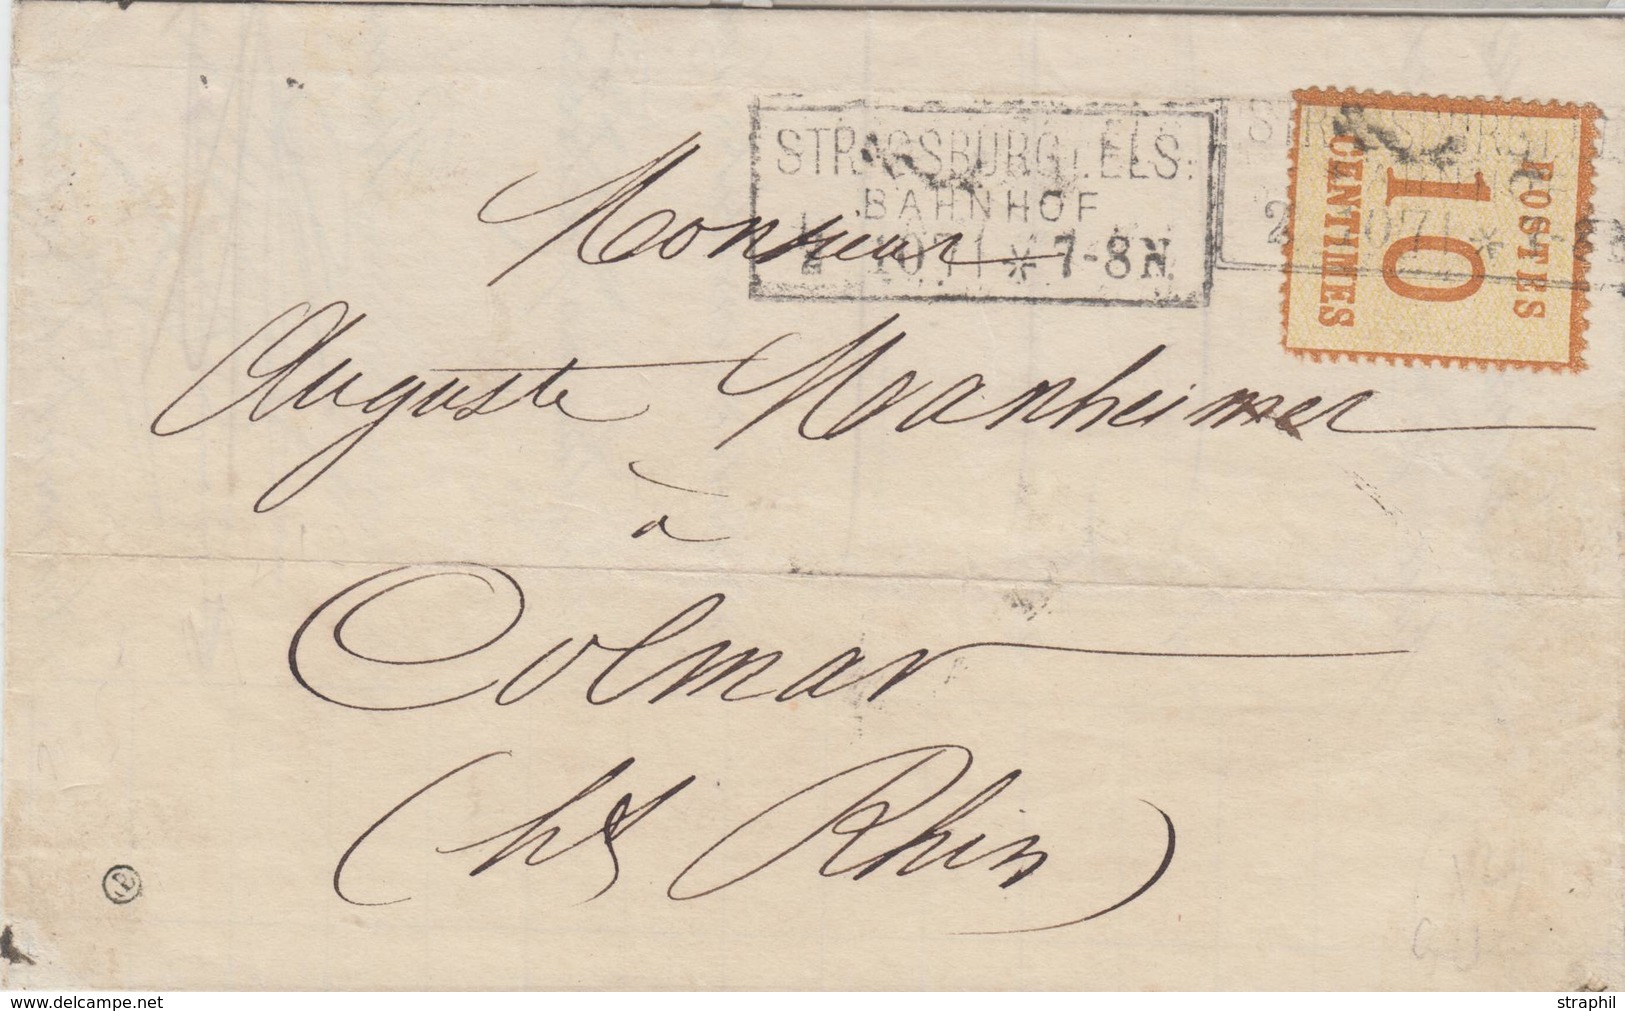 STRASSBURG I. ELS.
BAHNHOF
2 10 71 * 7-8 N.
POSTES
10
CENTIMES
Monsieur
Auguste Manheimer
à
Colmar
(ht Rhin)
B
delcampe.net
straphil